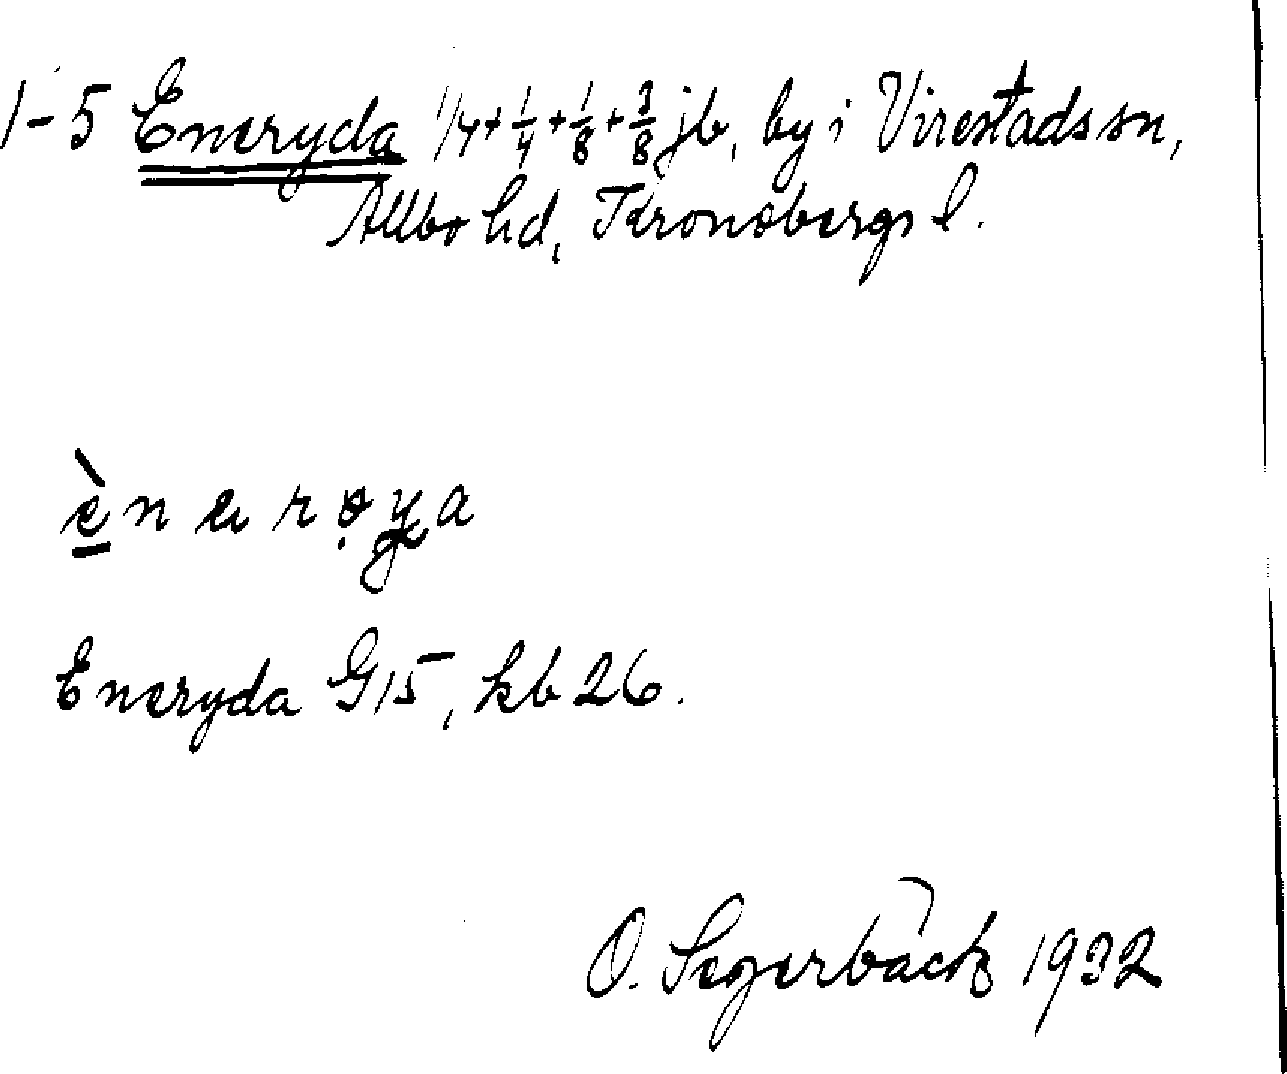 1-5 Eneryda 1/4+1/4+1/8+3/8 jb, by i Virestads sn,
Allbo hd, Kronobergs l.
Eneryda G15, kb 26.
O. Segerbäck 1932